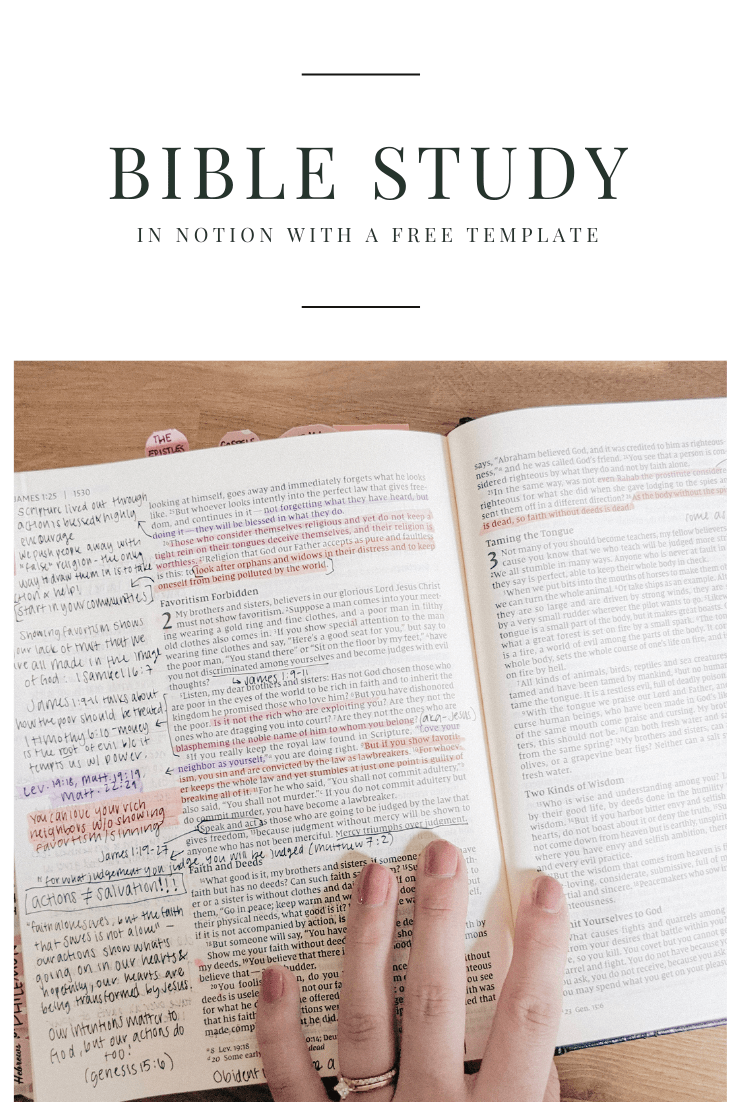 BIBLE STUDY
IN NOTION WITH A FREE TEMPLATE
THE
EPISTLES
JAMES 1:25 | 1530
scripture lived out through
action is blessed & highly
encourage
we push people away with
"false" religion - the only
way to draw them in is to take
action & help!
[start in your communities]
showing favoritism shows
our lack of trust that we
are all made in the image
of God: 1 Samuel 16:7
James 1:9-11 talks about
how the poor should be treated
1 Timothy 6:10 - money
is the root of evil b/c it
tempts us w/ power.
Lev. 19:18, Matt. 19:19
Matt. 22:29
You can love your rich
neighbors w/o showing
favoritism/sinning
James 1:19-27
"for what judgement you judge, you will be judged (matthew 7:2)
actions ≠ salvation!!!
"faith alone saves, but the faith
that saves is not alone" -
our actions show what is
going on in our hearts &
hopefully, our hearts are
being transformed by Jesus.
our intentions matter to
God, but our actions do
too!
(genesis 15:6)
Hebrews
PHILEMON
looking at himself, goes away and immediately forgets what he looks
like. 25But whoever looks intently into the perfect law that gives free-
dom, and continues in it — not forgetting what they have heard, but
doing it — they will be blessed in what they do.
26Those who consider themselves religious and yet do not keep a
tight rein on their tongues deceive themselves, and their religion is
worthless. 27Religion that God our Father accepts as pure and faultless
is this: to look after orphans and widows in their distress and to keep
oneself from being polluted by the world.
Favoritism Forbidden
2 My brothers and sisters, believers in our glorious Lord Jesus Christ
must not show favoritism. 2Suppose a man comes into your meet-
ing wearing a gold ring and fine clothes, and a poor man in filthy
old clothes also comes in. 3If you show special attention to the man
wearing fine clothes and say, "Here's a good seat for you," but say to
the poor man, "You stand there" or "Sit on the floor by my feet," 4have
you not discriminated among yourselves and become judges with evil
thoughts?
James 1:9-11
5Listen, my dear brothers and sisters: Has not God chosen those who
are poor in the eyes of the world to be rich in faith and to inherit the
kingdom he promised those who love him? 6But you have dishonored
the poor. Is it not the rich who are exploiting you? Are they not the ones
who are dragging you into court? 7Are they not the ones who are
blaspheming the noble name of him to whom you belong?
(aka-Jesus)
8If you really keep the royal law found in Scripture, "Love your
neighbor as yourself," you are doing right. 9But if you show favorit-
ism, you sin and are convicted by the law as lawbreakers. 10For whoev-
er keeps the whole law and yet stumbles at just one point is guilty of
breaking all of it. 11For he who said, "You shall not commit adultery,"
also said, "You shall not murder." If you do not commit adultery but
do commit murder, you have become a lawbreaker.
12Speak and act as those who are going to be judged by the law that
gives freedom, 13because judgment without mercy will be shown to
anyone who has not been merciful. Mercy triumphs over judgment.
Faith and Deeds
14What good is it, my brothers and sisters, if someone
faith but has no deeds? Can such faith save
er or a sister is without clothes and
them, "Go in peace; keep warm and
their physical needs, what good is it?
if it is not accompanied by action, is
18But someone will say, "You have
Show me your faith without deeds
my deeds. 19You believe that there is
believe that — shudder.
20You foolish
deeds is useless
for what he
that his faith
made comp
8 Lev. 19:18
20 Some early
says, "Abraham believed God, and it was credited to him as righteous-
ness," and he was called God's friend. 24You see that a person is con-
sidered righteous by what they do and not by faith alone.
25In the same way, was not even Rahab the prostitute considered
righteous for what she did when she gave lodging to the spies and
sent them off in a different direction? 26As the body without the
is dead, so faith without deeds is dead.
Taming the Tongue
3 Not many of you should become teachers, my fellow believers,
cause you know that we who teach will be judged more
2We all stumble in many ways. Anyone who is never at fault in
they say is perfect, able to keep their whole body in check.
3When we put bits into the mouths of horses to make them
we can turn the whole animal. 4Or take ships as an example.
they are so large and are driven by strong winds, they are
by a very small rudder wherever the pilot wants to go.
tongue is a small part of the body, but it makes great boasts.
what a great forest is set on fire by a small spark.
is a fire, a world of evil among the parts of the body. It
whole body, sets the whole course of one's life on fire, and
on fire by hell.
7All kinds of animals, birds, reptiles and sea creatures
tamed and have been tamed by mankind, 8but no human
tame the tongue. It is a restless evil, full of deadly
9With the tongue we praise our Lord and Father, and
curse human beings, who have been made in God's
of the same mouth come praise and cursing. My
ters, this should not be. 11Can both fresh water and
from the same spring? 12My brothers and sisters, can a
olives, or a grapevine bear figs? Neither can a salt
fresh water.
Two Kinds of Wisdom
13Who is wise and understanding among you?
by their good life, by deeds done in the humility
wisdom. 14But if you harbor bitter envy and selfish
hearts, do not boast about it or deny the truth.
not come down from heaven but is earthly,
where you have envy and selfish ambition,
and every evil practice.
17But the wisdom that comes from heaven is
loving, considerate, submissive, full of
tial and sincere. 18Peacemakers who sow
teousness.
Submit Yourselves to God
What causes fights and quarrels among
from your desires that battle within
so you kill. You covet but you
quarrel and fight. You do not have
you ask, you do not receive, because you
you may spend what you get on your